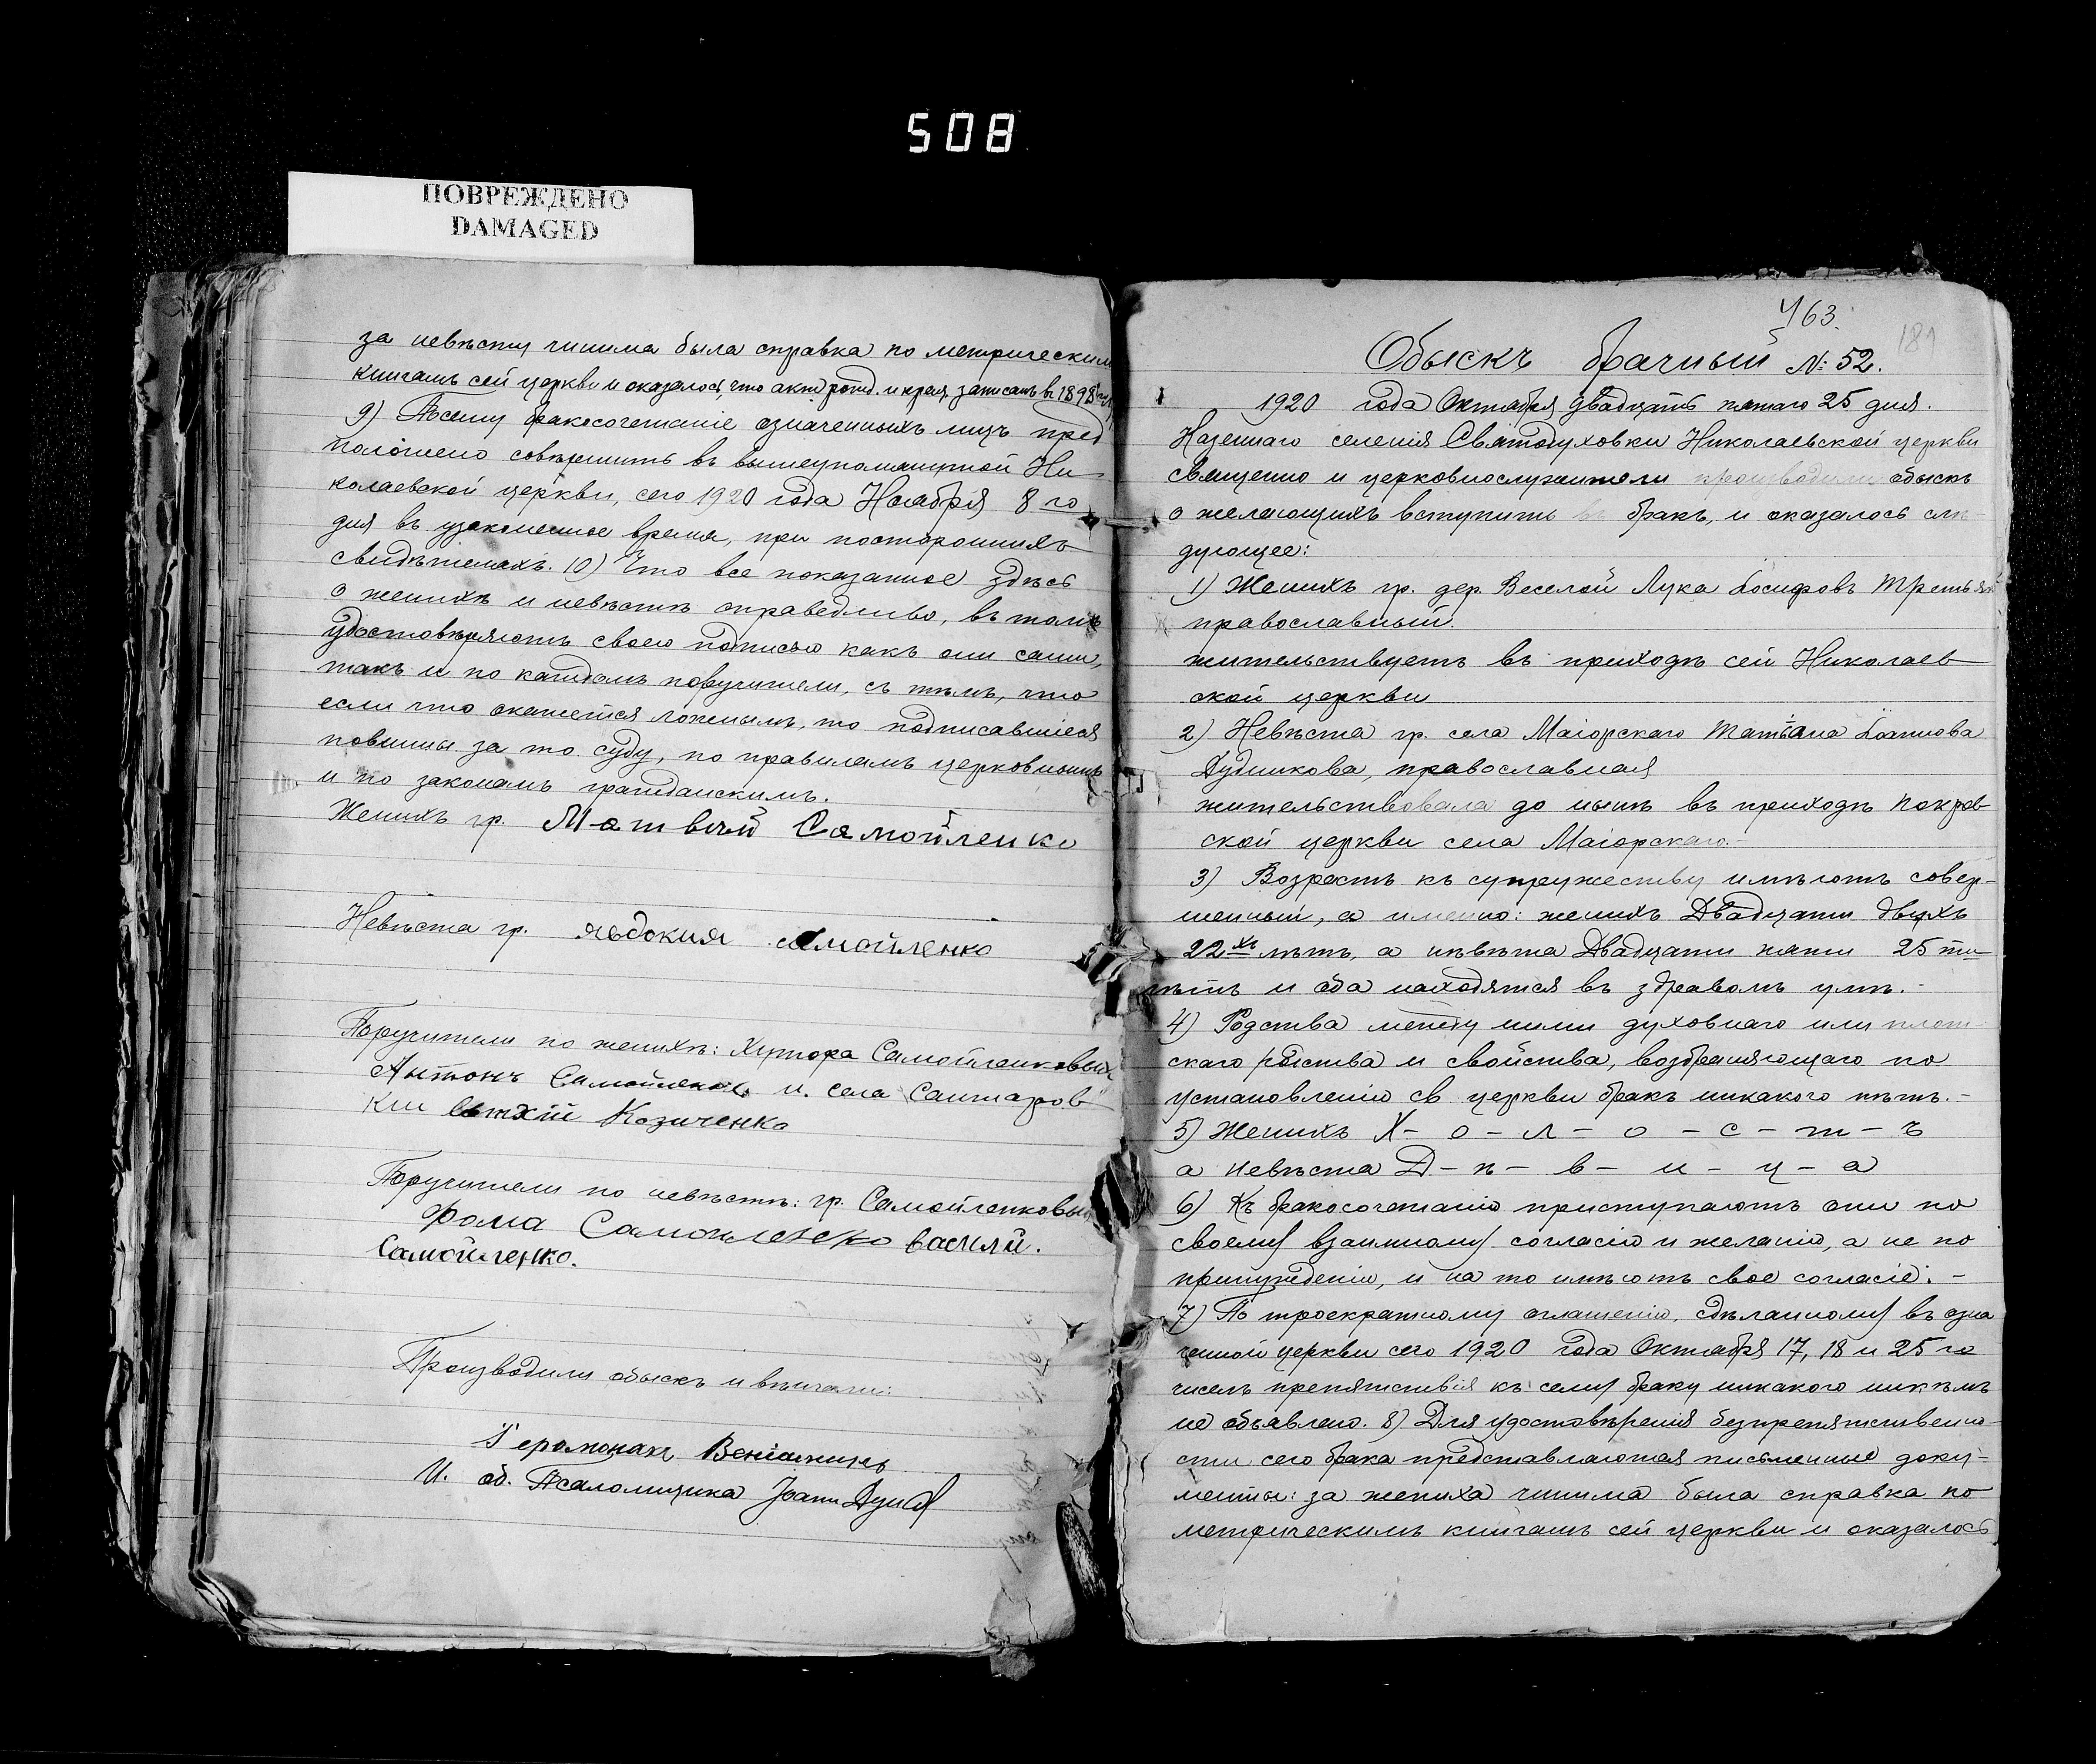 508
ПОВРЕЖДЕНО
DAMAGED
за невѣсту чинима была справка по метрическим
книгамъ сей церкви и оказалось, что актъ рожд. и крещ. записанъ въ 1898 г.
9) По сему бракосочетаніе означенныхъ лицъ пред
положено совершить въ вышеупомянутой Ни
колаевской церкви, сего 1920 года Ноября 8 го
дня въ узаконенное время, при постороннихъ
свидѣтеляхъ. 10) Что все показанное здѣсь
о женихѣ и невѣстѣ справедливо, въ томъ
удостовѣряютъ своею подписью какъ они сами,
такъ и по каждомъ поручители, съ тѣмъ, что
если что окажется ложнымъ, то подписавшіеся
повинны за то суду, по правиламъ церковнымъ
и по законамъ гражданскимъ.
Женихъ гр. Матвѣй Самойленко
Невѣста гр. явдокия самойленко
Поручители по женихѣ: Хутора Самойленковыхъ
Антонъ Самойленко и села Сантаров
ки Козиченко
Поручители по невѣстѣ: гр. Самойленковы
Фома Самойленко василй.
Самойленко.
Производили обыскъ и вѣнчали:
Іеромонахъ Веніаминъ
И. об. Псаломщика Іоаннъ
463.
181
Обыскъ брачный №: 52.
1920 года Октября двадцать пятаго 25 дня.
Казеннаго селенія Святодуховки Николаевской церкви
священно и церковнослужители производили обыскъ
о желающихъ вступить въ бракъ, и оказалось слѣ
дующее:
1) Женихъ гр. дер. Веселой Лука Іосифовъ Третьяк
православный.
жительствуетъ въ приходѣ сей Николаев
ской церкви
2) Невѣста гр. села Маіорскаго Татіана Іоаннова
Дудникова, православная
жительствовала до нынѣ въ приходѣ Покров
ской церкви села Маіорскаго.-
3) Возрастъ къ супружеству имѣютъ совер-
шенный, а именно: женихъ Двадцати двухъ
22хъ лѣтъ, а невѣста Двадцати пяти 25 ти
лѣтъ и оба находятся въ здравомъ умѣ.-
4) Родства между ними духовнаго или плот
скаго родства и свойства, возбраняющаго по
установленію св церкви бракъ никакого нѣтъ.-
5) Женихъ Х- о - л - о - с - т - ъ
а невѣста Д- ѣ- в- и - ц - а
6) Къ бракосочетанію приступаютъ они по
своему взаимному согласію и желанію, а не по
принужденію, и на то имѣютъ свое согласіе.-
7) По троекратному оглашенію, сдѣланному въ озна
ченной церкви сего 1920 года Октября 17, 18 и 25 го
чиселъ препятствія къ сему браку никакого никѣмъ
не объявлено. 8) Для удостовѣренія безпрепятственно-
сти сего брака представляются письменные доку-
менты: за жениха чинима была справка по
метрическимъ книгамъ сей церкви и оказалось